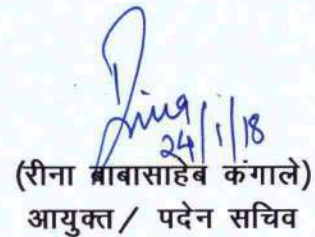 Rina
24/1/18
(रीना बाबासाहेब कंगाले)
आयुक्त / पदेन सचिव